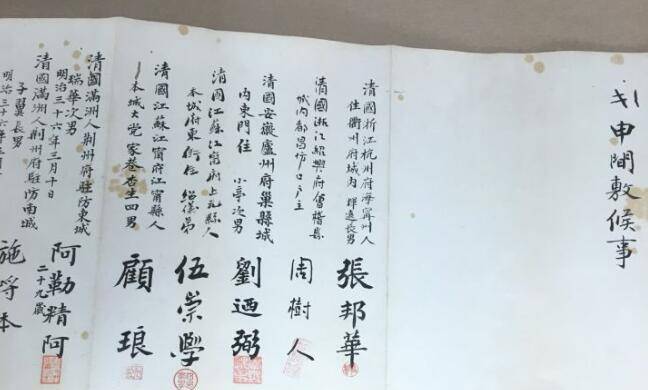 申聞敷候事
清國浙江杭州府海寧州人
住衢州府城內 長男
張邦華
清國浙江紹興府會稽縣
城內都昌坊口戶主
周樹人
清國安徽廬州府巢縣城
內東門住 小亭次男
劉迺弼
清國江蘇江寧府上元縣人
本城府東街住 紹儀弟
伍崇學
清國江蘇江寧府江寧縣人
本城大党家巷 杏生四男
顧琅
清國滿洲人荊州府駐防東城
瑞華次男
明治三十六年三月十日
阿勒精阿
二十九歲
清國滿洲人荊州府駐防南城
子翼長男
明治三十六年三月
施